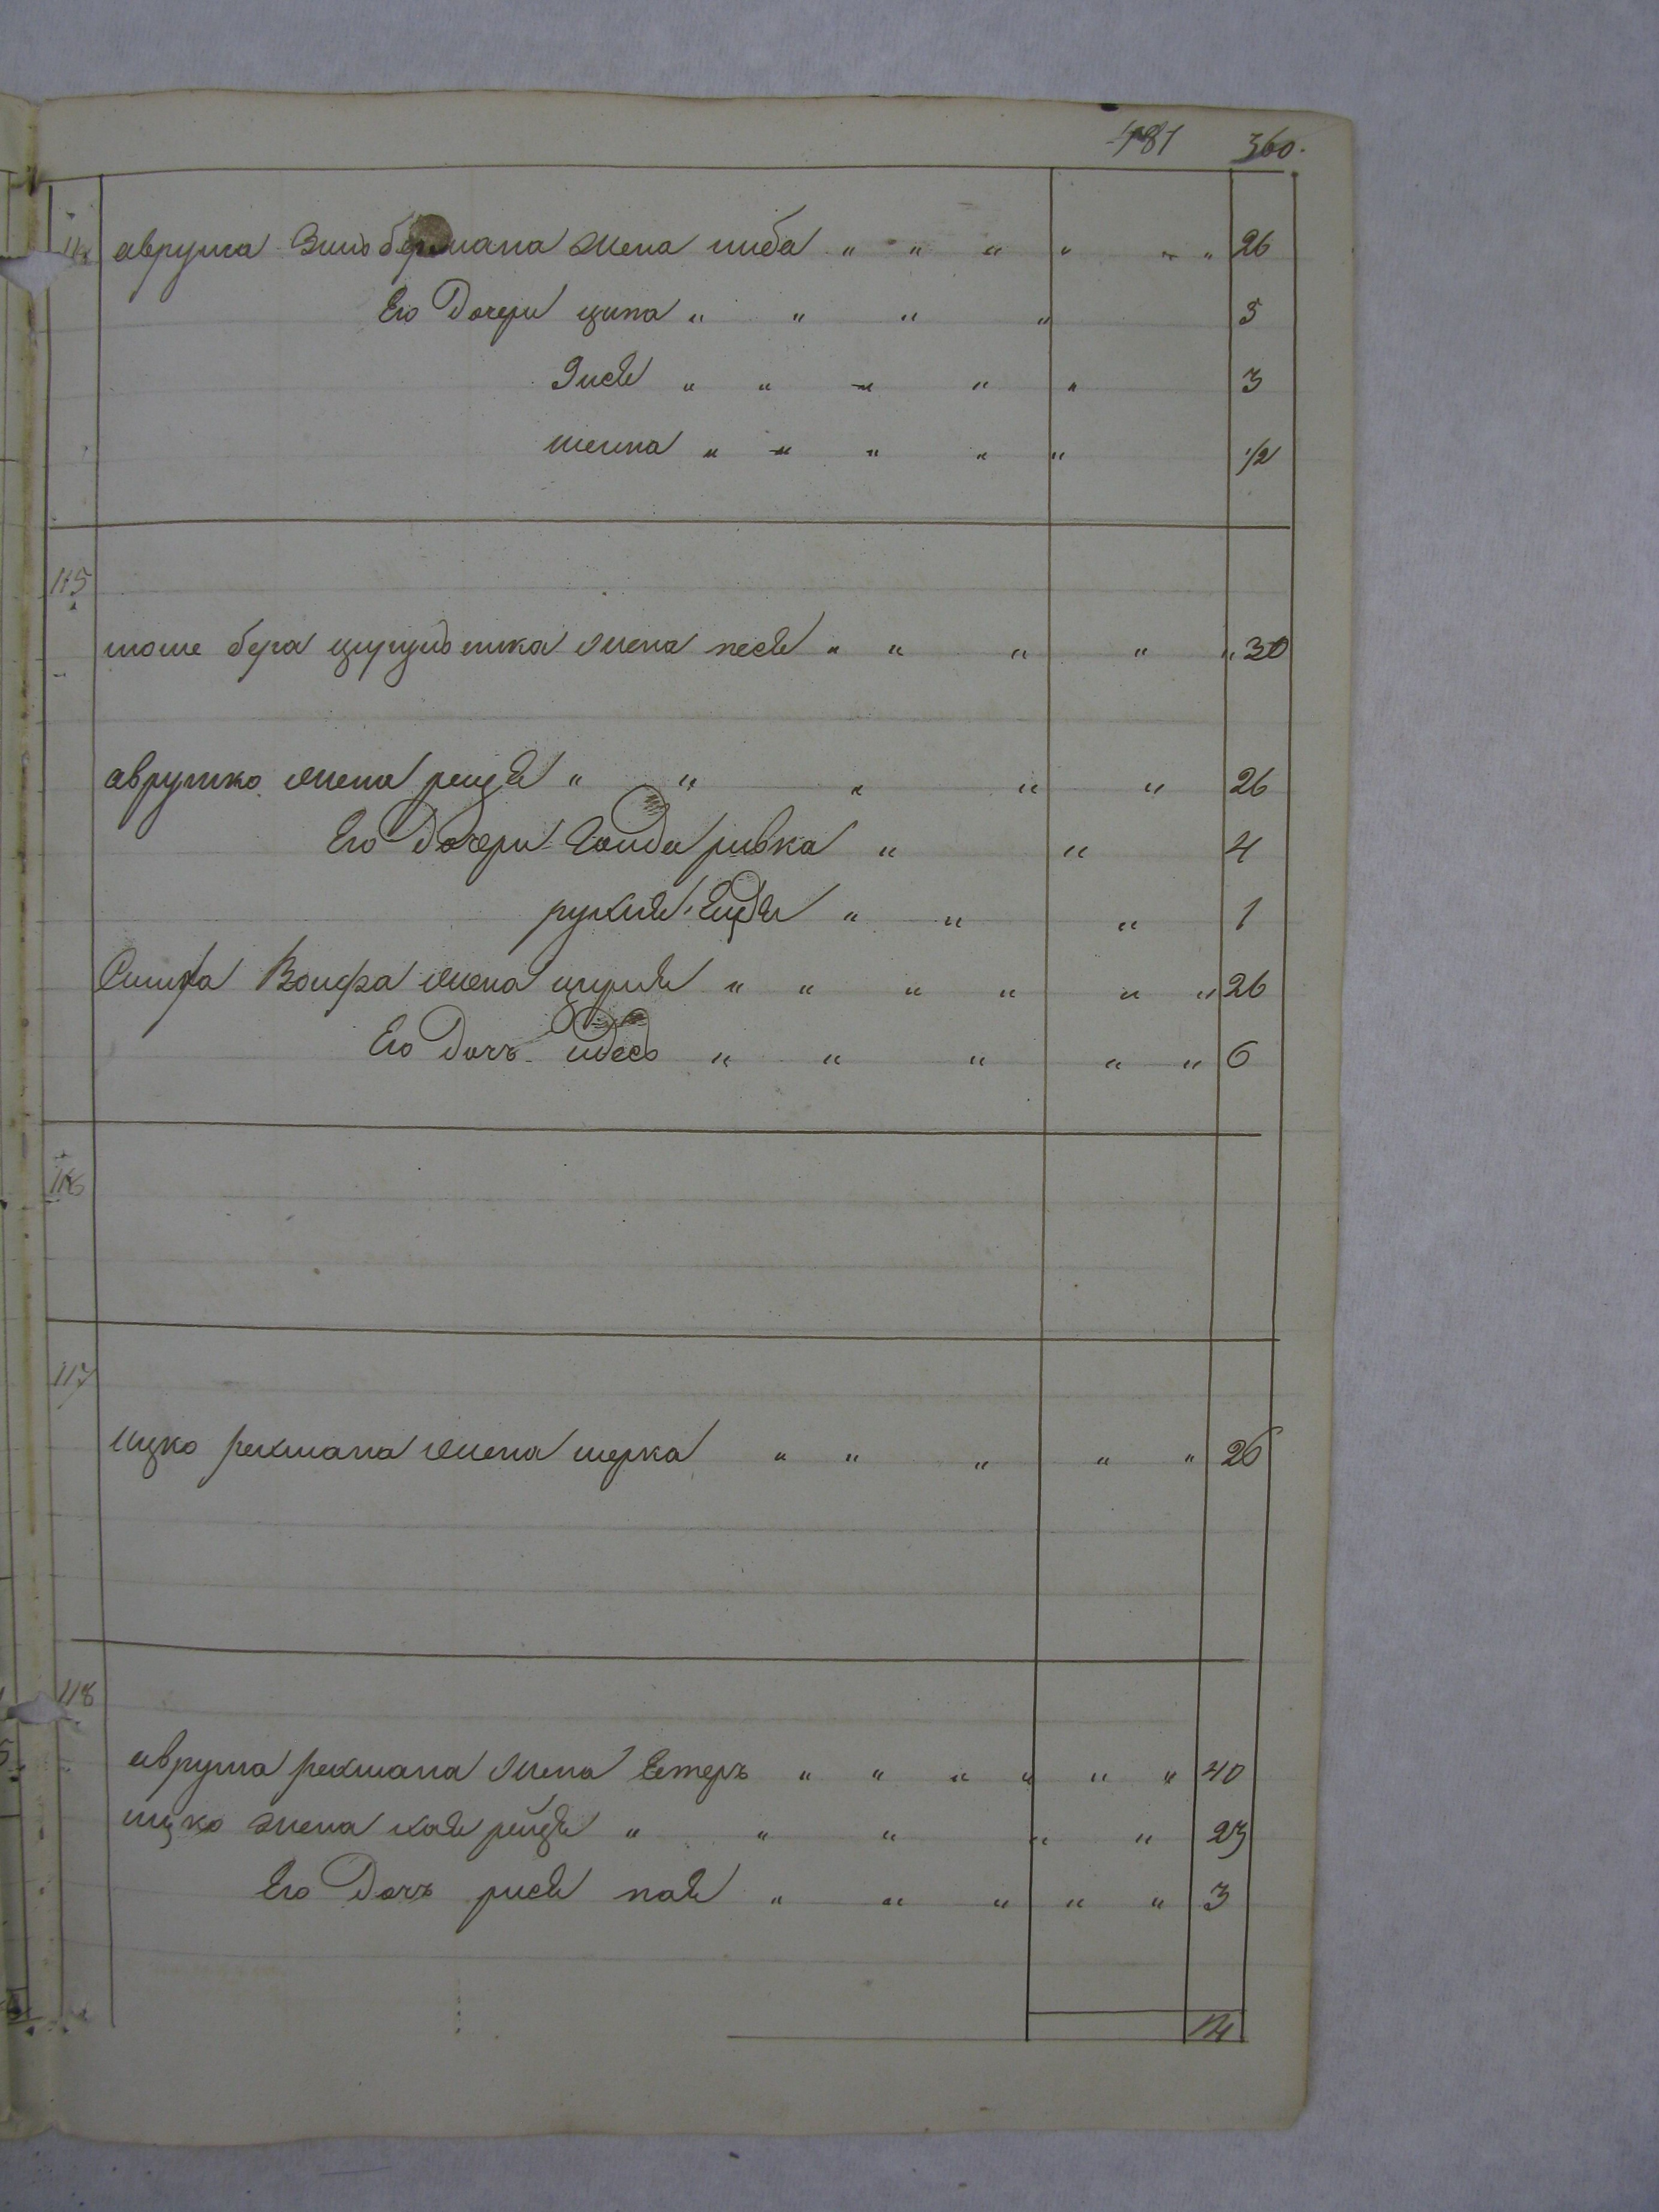 481 360.
114 аврума Зильбермана жена либа " " " " " " 26
Его Дочери ципа " " " " 5
Эися " " " " " 3
шеина " " " " " 1/2
115
мошe бера цирульника жена песя " " " " " 30
аврумко жена рейзя " " " " " 26
Его Дочери Гольда ривка " " 4
рухля " " " 1
Вольфа жена цирля " " " " " " 26
Его Дочь " " " " " 6
116
117
ицко рехмана жена шерка " " " " " 26
118
аврума рехмана жена Естеръ " " " " " " 40
ицко жена хая рейзя " " " " " 23
Его Дочь рися пая " " " " " 3
14